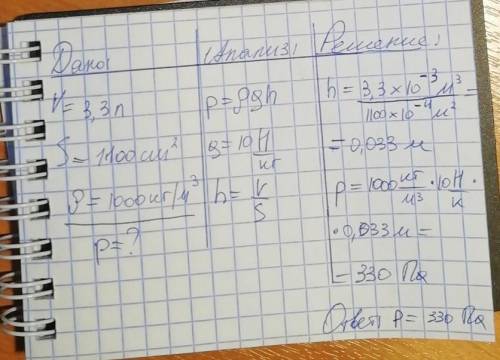 Дано:
V = 3,3 л
S = 1100 см²
ρ = 1000 кг/м³
p = ?
Анализ:
p = ρgh
g = 10 Н/кг
h = V/S
Решение:
h = 3,3 × 10⁻³ м³ / 1100 × 10⁻⁴ м² =
= 0,033 м
p = 1000 кг/м³ · 10 Н/к ·
· 0,033 м =
= 330 Па
Ответ: p = 330 Па